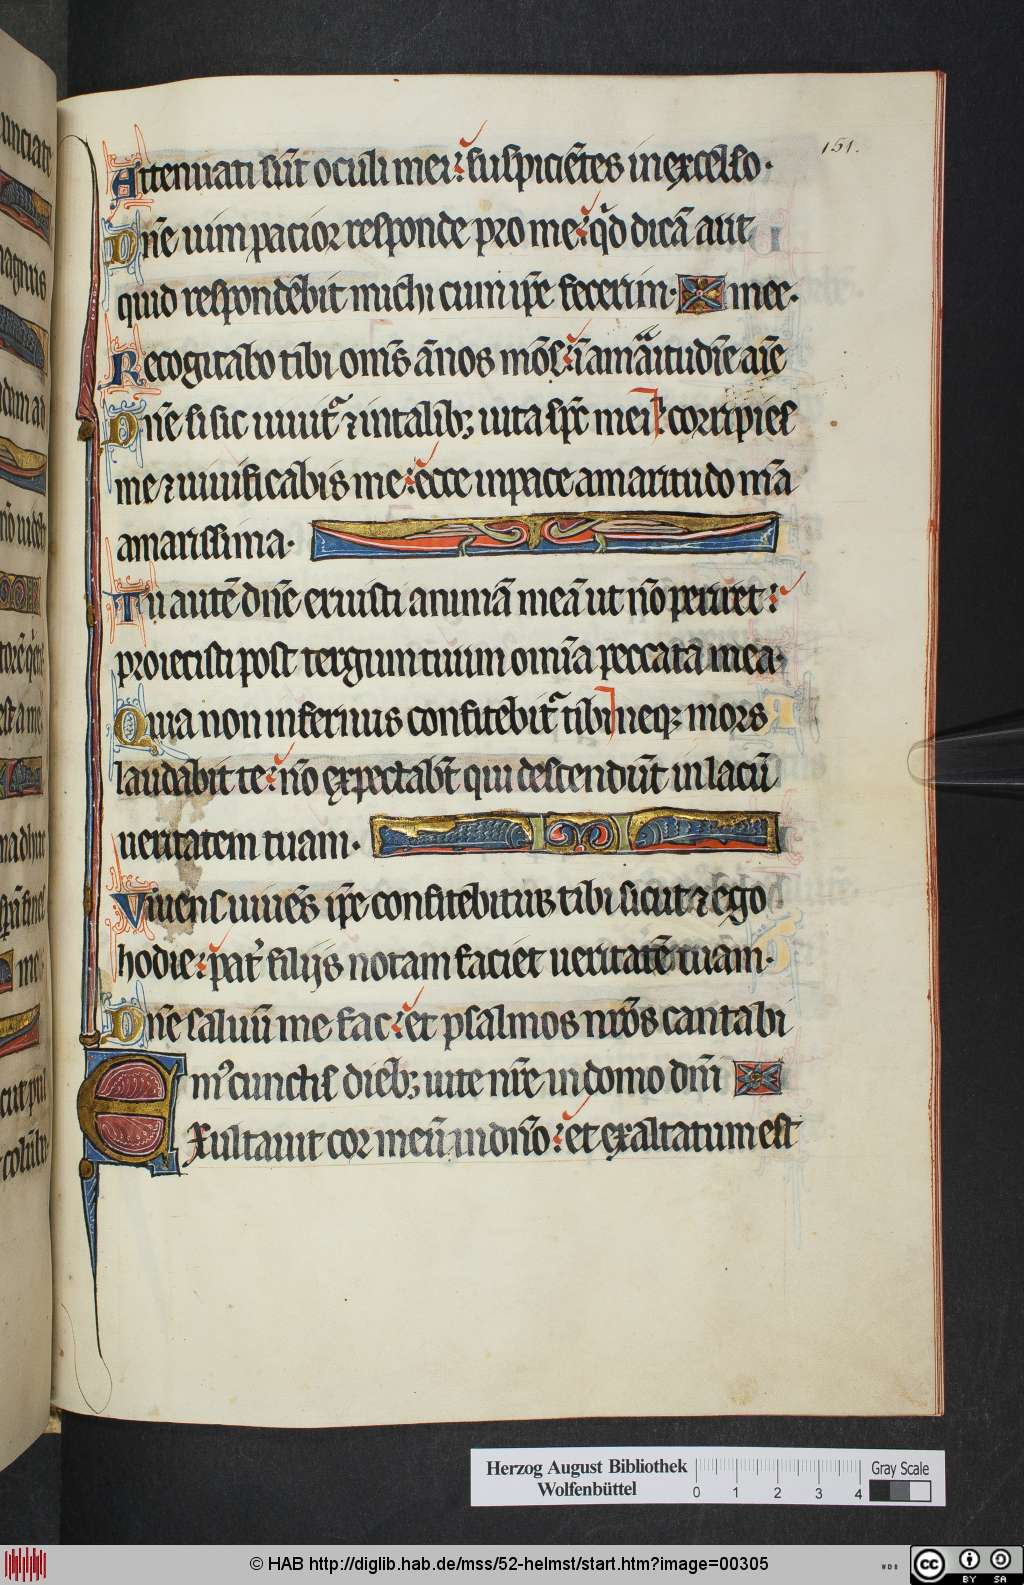 151.
Attenuati sūt oculi mei: suspiciētes in excelso.
Dn̄e uim pacior responde pro me: qͥd dicā aut
quid respondēbit michi cum ip̄e fecerim. mee.
Recogitabo tibi om̄s ānos mōs: ī amaͣitudīe aīe
Dn̄e si sic uiuitᷣ ⁊ in talibꝫ uita sp̄c mei corripies
me ⁊ uiuificabis me: ecce in pace amaritudo m̄a
amarissima.
Tu autē dn̄e eruisti animā meā ut nō periret:
proiecisti post tergum tuum om̄ia peccata mea.
Quia non infernus confitebitᷣ tibi neqꝫ mors
laudabit te: nō expectabūt qui descendūt in lacū
ueritatem tuam.
Viuens uiuēs ip̄e confitebitur tibi sicut ⁊ ego
hodie: pat̓ filijs notam faciet ueritatē tuam.
Dn̄e saluū me fac: et psalmos nr̄os cantabi
mꝰ cunctis diebꝫ uite nr̄e in domo dn̄i
Exultauit cor meū in dn̄o: et exaltatum est
unciate
magnus
me
Herzog August Bibliothek
Wolfenbüttel
0 1 2 3 4
Gray Scale
© HAB http://diglib.hab.de/mss/52-helmst/start.htm?image=00305
WDB
cc BY SA